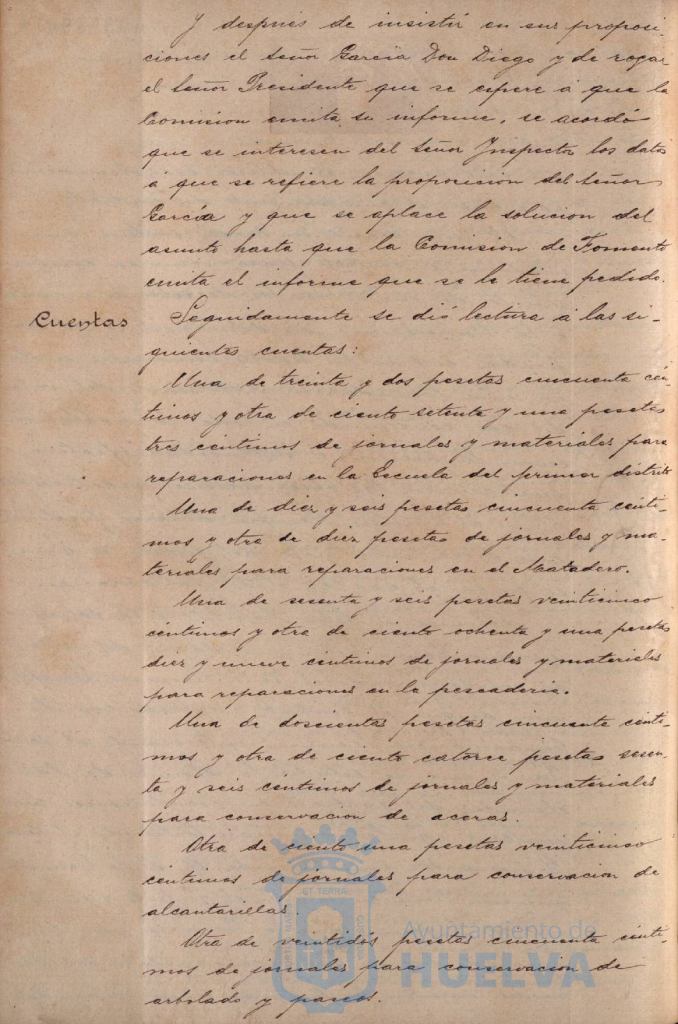 Y después de insistir en sus proposi-
ciones el Señor García Don Diego y de rogar
el Señor Presidente que se espere á que la
Comision emita su informe, se acordó
que se interesen del Señor Inspector los datos
á que se refiere la proposicion del Señor
García y que se aplace la solucion del
asunto hasta que la Comision de Fomento
emita el informe que se le tiene pedido.
Cuentas
Seguidamente se dió lectura á las si-
guientes cuentas:
Una de treinta y dos pesetas cincuenta cén-
timos y otra de ciento setenta y una pesetas
tres céntimos de jornales y materiales para
reparaciones en la Escuela del primer distrito
Una de diez y seis pesetas cincuenta cénti-
mos y otra de diez pesetas de jornales y ma-
teriales para reparaciones en el Matadero.
Una de sesenta y seis pesetas veinticinco
céntimos y otra de ciento ochenta y una pesetas
diez y nueve céntimos de jornales y materiales
para reparaciones en la pescaderia.
Una de doscientas pesetas cincuenta cénti-
mos y otra de ciento catorce pesetas sesen-
ta y seis céntimos de jornales y materiales
para conservacion de aceras.
Otra de ciento una pesetas veinticinco
céntimos de jornales para conservacion de
alcantarillas.
Otra de veintidós pesetas cincuenta cénti-
mos de jornales para conservacion de
arbolado y paseos.
ET TERRA
Ayuntamiento de
HUELVA